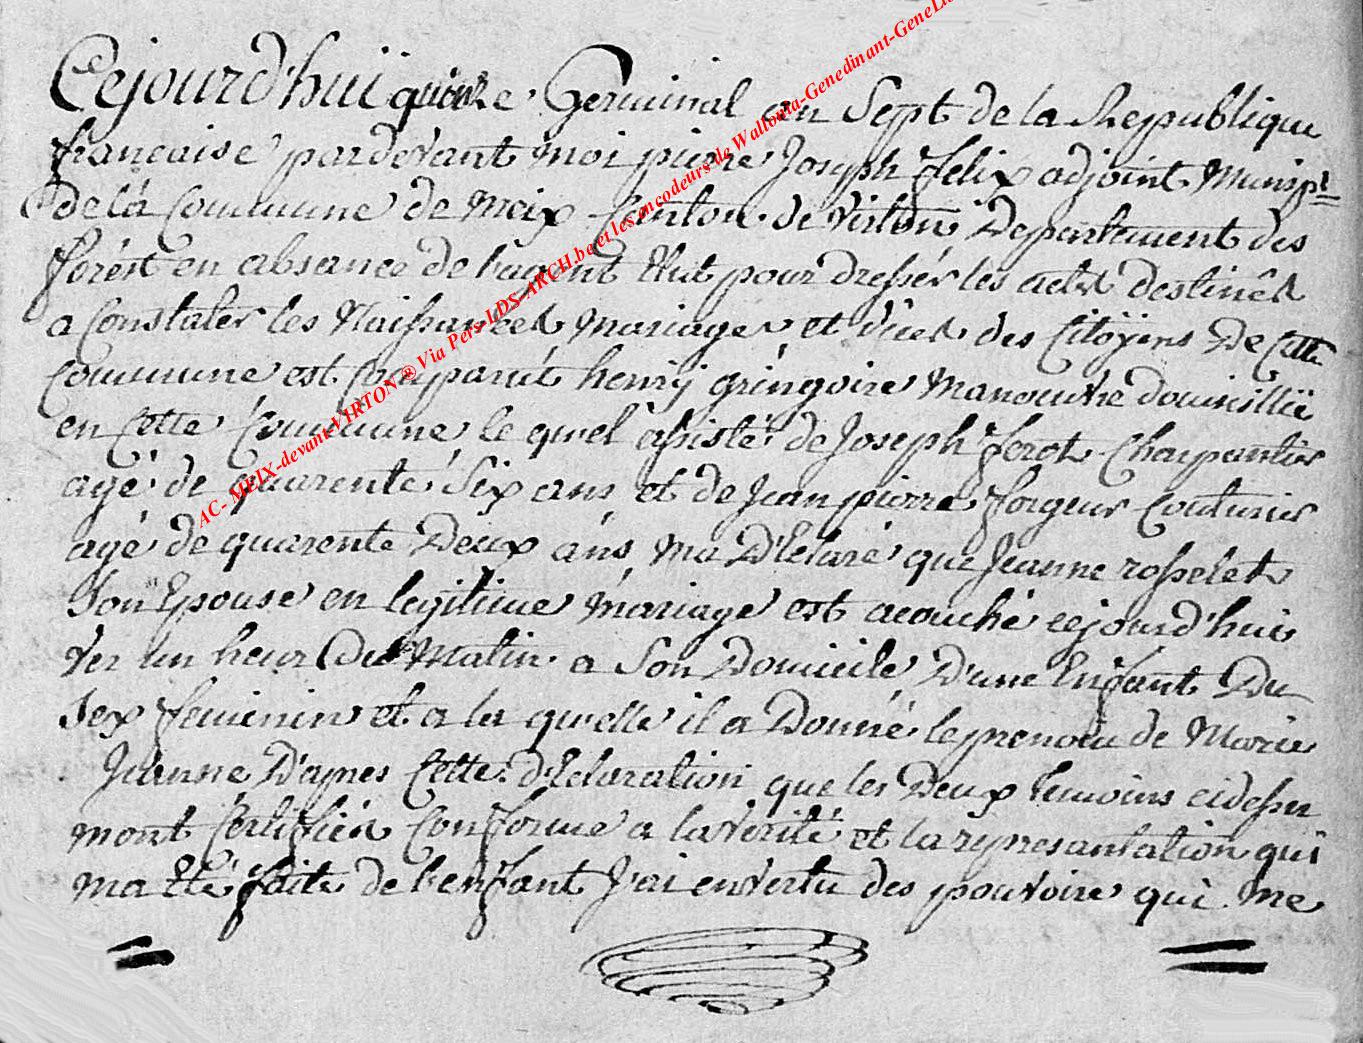 Cejourd'hui quinze Germinal an Sept de la Republique
francaise pardevant moi pierre Joseph felix adjoint Munispl
de la Commune de Meix Canton de Virton Departement des
forêt en absance de l'agent Elut pour dresser les actes destinés
a Constater les Naissances mariages et déces des Citoÿens De Cette
Commune est Comparut henrÿ gringoire Manouvre domicillié
en Cette Commune le quel assisté de Joseph ferot Charpentier
agé de quarente Six ans et de Jean pierre forgeur Couturier
agé de quarente Deux ans ma D'Eclaré que Jeanne rosselet
Son Epouse en legitime mariage est acouché cejourd'hui
ver un heur Du Matin a Son Domicile D'une Enfant Du
Sex feminin et a la quelle il a Donné le prenom de Marie
Jeanne D'apres Cette d'Eclaration que les Deux temoins cidessu
mont Certifiér Conforme a la verité et la represantation qui
ma Eté faite de l'enfant J'ai en vertu des pouvoire qui me
AC- MEIX-devant-VIRTON ® Via Pers-LDS-ARCH.be et les encodeurs de Wallonia-Genedinant-GeneLi